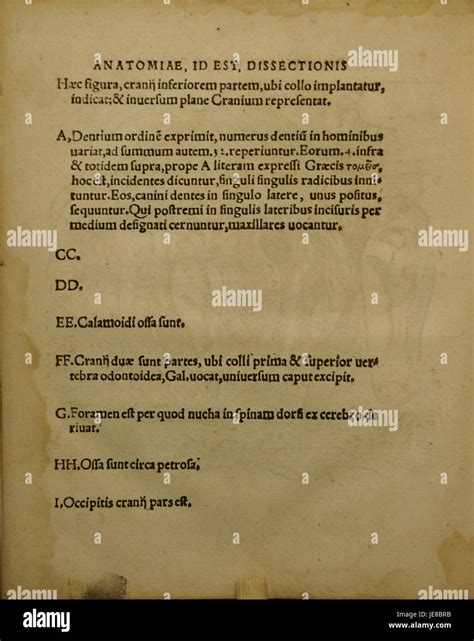 ANATOMIAE, ID EST, DISSECTIONIS
Hæc figura, cranij inferiorem partem, ubi collo implantatur,
indicat; & inuersum plane Cranium repræsentat.
A, Dentium ordinẽ exprimit, numerus dentiũ in hominibus
uariat, ad summum autem. 32. reperiuntur. Eorum. 4. infra
& totidem supra, prope A literam expressi Græcis τομεῖς,
hoc est, incidentes dicuntur, singuli singulis radicibus inni
tuntur. Eos, canini dentes in singulo latere, unus positus,
sequuntur. Qui postremi in singulis lateribus incisuris per
medium designati cernuntur, maxillares uocantur.
CC.
DD.
EE. Calamoidi ossa sunt.
FF. Cranij duæ sunt partes, ubi colli prima & superior uer
tebra odontoidea, Gal. uocat, uniuersum caput excipit.
G. Foramen est per quod nucha in spinam dorsi ex cerebro de
riuat.
HH. Ossa sunt circa petrosa.
I. Occipitis cranij pars est.
alamy
alamy
alamy
alamy
alamy
alamy
Image ID: JE8BRB
www.alamy.com